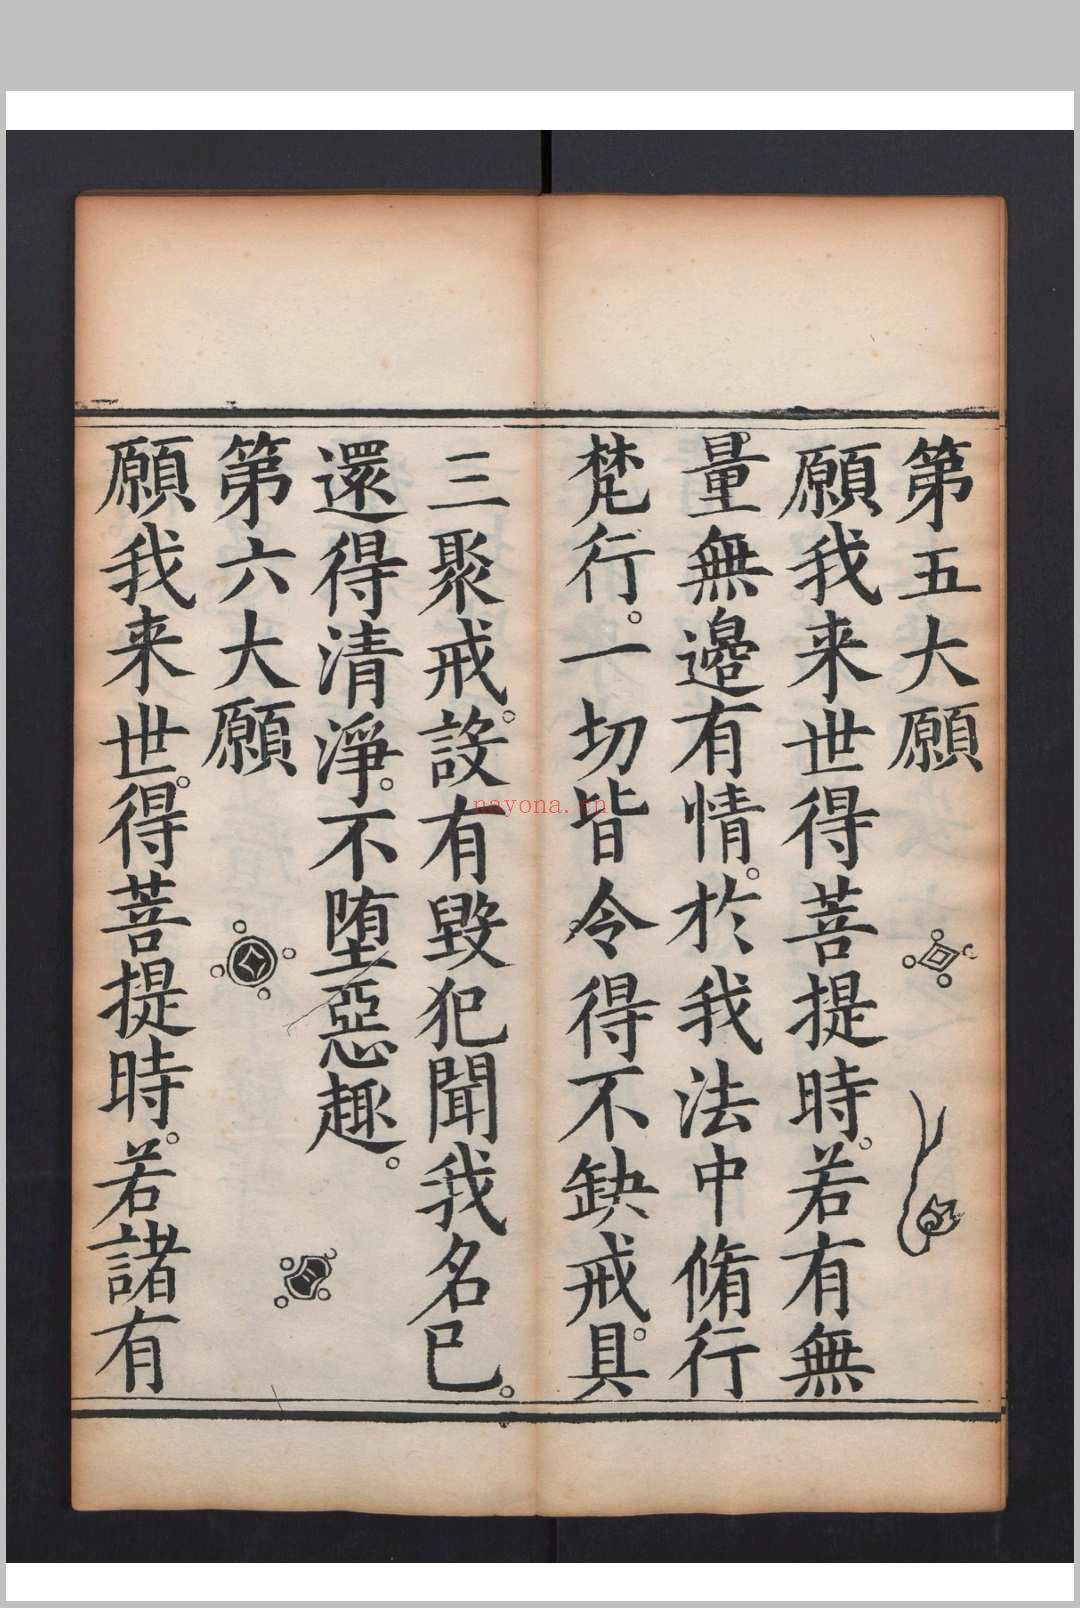 第五大願
願我来世得菩提時。若有無
量無邊有情。於我法中脩行
梵行。一切皆令得不缺戒。具
三聚戒。設有毀犯聞我名已。
還得清淨。不堕惡趣。
第六大願
願我来世。得菩提時。若諸有
nayona.cn